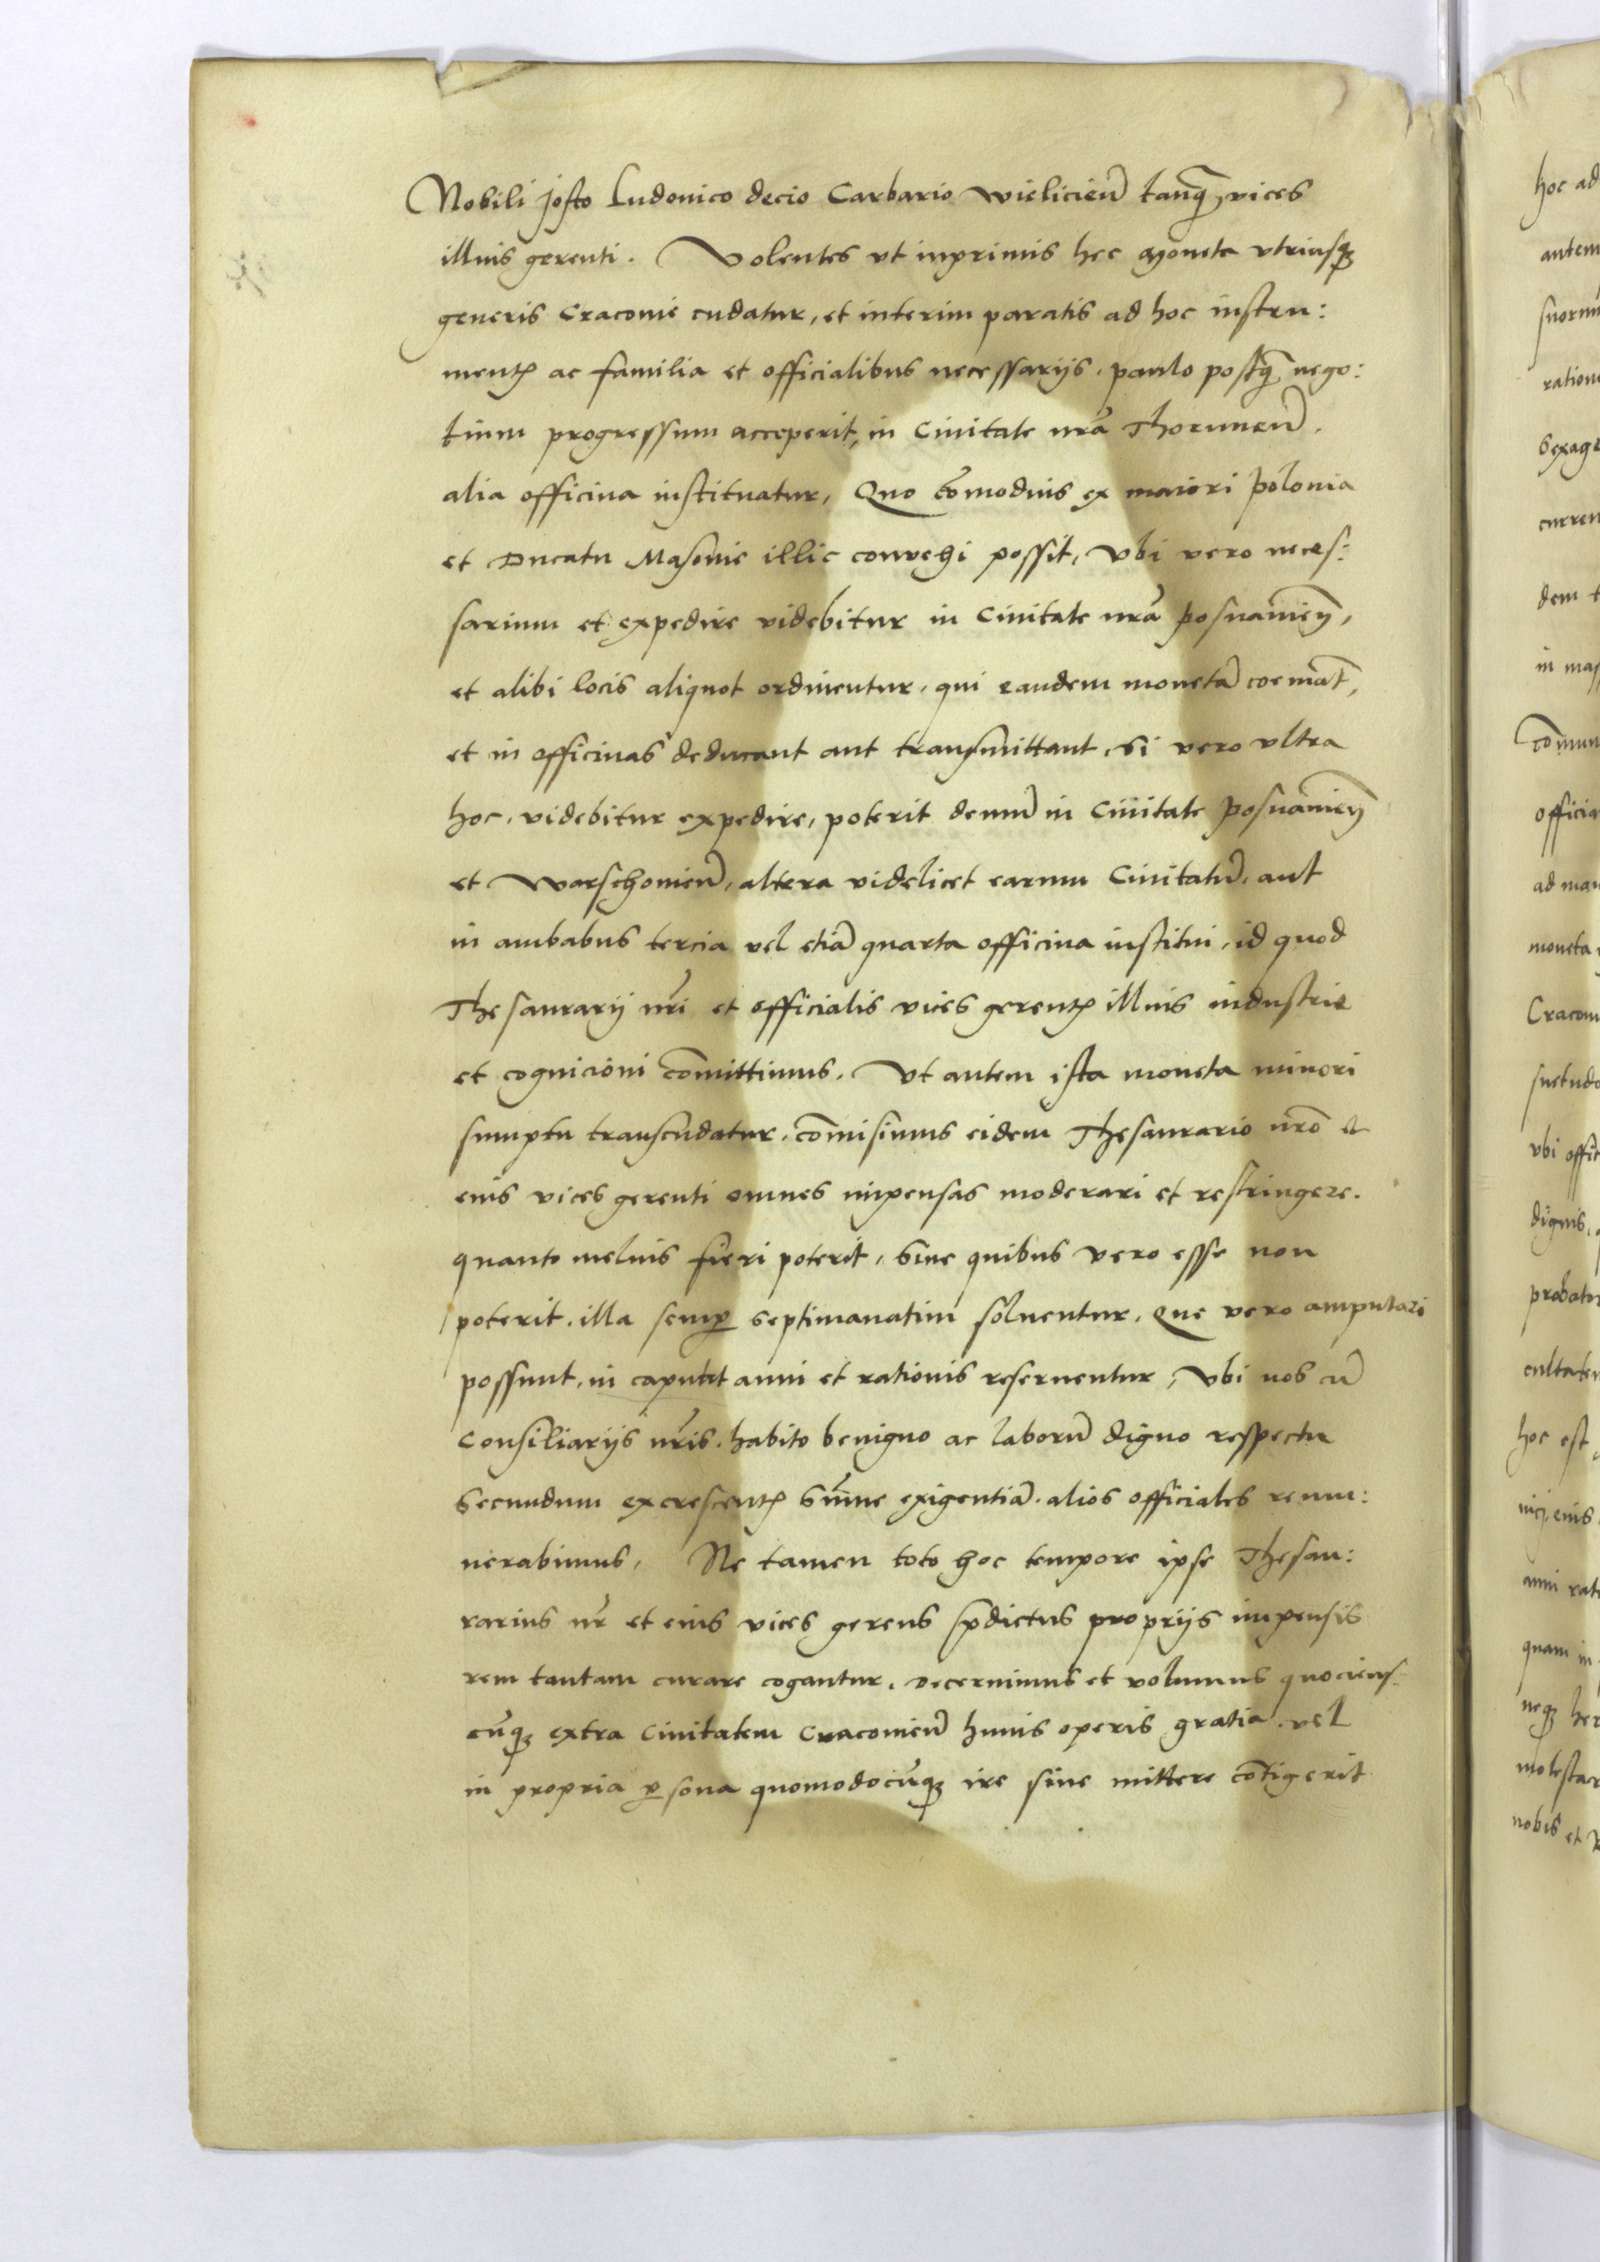 Nobili Josto Ludovico decio Carbario Wielicień tanq̃ vices
illius gerenti. Volentes vt inprimis hec Moneta vtriusq;
generis Cracovie cudatur, et interim paratis ad hoc instru:
mentꝭ ac familia et officialibus necessarijs, paulo postq̃ nego:
tium progressum acceperit, in Civitate nrã Thorunen̄.
alia officina instituatur, Quo cõmodius ex maiori Polonia
et Ducatu Masovie illic convehi possit, Vbi vero neces:
sarium et expedire videbitur in Civitate nrã Posnanień,
et alibi locis aliquot ordinentur, qui eandem monetã coemãt,
et in officinas deducant aut transmittant, Si vero vltra
hoc, videbitur expedire, poterit demũ in Civitate Posnanień
et Warschovień, altera videlicet earum Civitatũ, aut
in ambabus tercia vel etiã quarta officina institui, id quod
Thesaurarij nr̃i et officialis vices gerentꝭ illius industrie
et cognicioni cõmittimus. Vt autem ista moneta minori
sumptu transcudatur, cõmisimus eidem Thesaurario nrõ et
eius vices gerenti omnes impensas moderari et restringere.
quanto melius fieri poterit, Sine quibus vero esse non
poterit, illa semꝑ septimanatim solventur, Que vero amputari
possunt, in caput anni et rationis reserventur, Vbi nos cũ
Consiliarijs nr̃is, habito benigno ac laborũ digno respectu
Secundum excrescentꝭ Sum̃e exigentiã, alios officiales remu:
nerabimus, Ne tamen toto hoc tempore ipse Thesau:
rarius nr̃ et eius vices gerens p̃dictus proprijs impensis
rem tantam curare cogantur, Decernimus et volumus quociens:
cũq; extra Civitatem Cracovień huius operis gratia, vel
in propria ꝑsona quomodocũq; ire sive mittere cõtigerit
hoc ad
autem
ratione
Sexage
curren
dem t
in mas
cõmun
officia
ad man
moneta
Cracovi
suetudo
vbi offic
dignis,
probatu
cultatem
hoc est
eius
anni rati
quam in
neq; her
molestar
nobis et